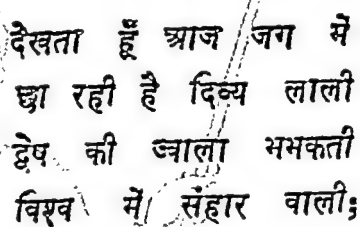 देखता हूँ आज जग में
छा रही है दिव्य लाली
द्वेष की ज्वाला भभकती
विश्व में संहार वाली;